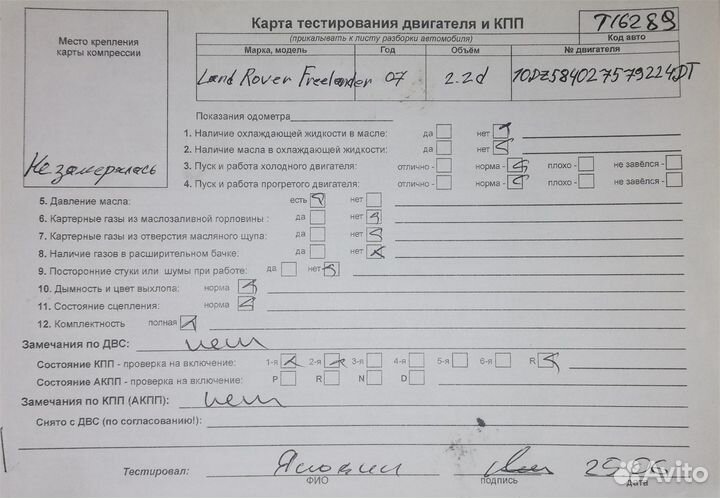 Место крепления карты компрессии
Не замерялась
Карта тестирования двигателя и КПП
(прикалывать к листу разборки автомобиля)
T16289
Код авто
Марка, модель Год Объём № двигателя
Land Rover Freelander 07 2.2d 10DZ584027579224DT
Показания одометра
1. Наличие охлаждающей жидкости в масле: да нет
2. Наличие масла в охлаждающей жидкости: да нет
3. Пуск и работа холодного двигателя: отлично - норма - плохо - не завёлся -
4. Пуск и работа прогретого двигателя: отлично - норма - плохо - не завёлся -
5. Давление масла: есть нет
6. Картерные газы из маслозаливной горловины : да нет
7. Картерные газы из отверстия масляного щупа: да нет
8. Наличие газов в расширительном бачке: да нет
9. Посторонние стуки или шумы при работе: да нет
10. Дымность и цвет выхлопа: норма
11. Состояние сцепления: норма
12. Комплектность полная
Замечания по ДВС: нет
Состояние КПП - проверка на включение: 1-я 2-я 3-я 4-я 5-я 6-я R
Состояние АКПП - проверка на включение: P R N D
Замечания по КПП (АКПП): нет
Снято с ДВС (по согласованию!):
Тестировал: 25.06.
ФИО подпись дата
Avito